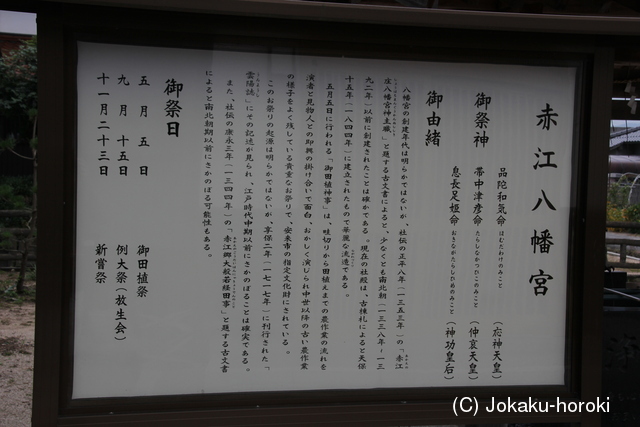 赤江八幡宮
御祭神
品陀和気命 ほむたわけのみこと （応神天皇）
帯中津彦命 たらしなかつひこのみこと （仲哀天皇）
息長足姫命 おきながたらしひめのみこと （神功皇后）
御由緒
八幡宮の創建年代は明らかではないが、社伝の正平八年（一三五三年）の「赤江
庄八幡宮神主職」と題する古文書によると、少なくとも南北朝（一三三八年〜一三
九二年）以前に創建されたことは確かである。現在の社殿は、古棟札によると天保
十五年（一八四四年）に建立されたもので華麗な流造である。
五月五日に行われる「御田植神事」は、畦切りから田植えまでの農作業の流れを
演者と見物人との即興の掛け合いで面白、おかしく演じられ中世以降の古い農作業
の様子をよく残している貴重なお祭りで、安来市の指定文化財にされている。
このお祭りの起源は明らかではないが、享保二年（一七一七年）に刊行された「
雲陽誌」にその記述が見られ、江戸時代中期以前にさかのぼることは確実である。
また、社伝の康永三年（一三四四年）の「赤江郷大般若経田事」と題する古文書
によると南北朝期以前にさかのぼる可能性もある。
御祭日
五月五日 御田植祭
九月十五日 例大祭（放生会）
十一月二十三日 新嘗祭
(C) Jokaku-horoki